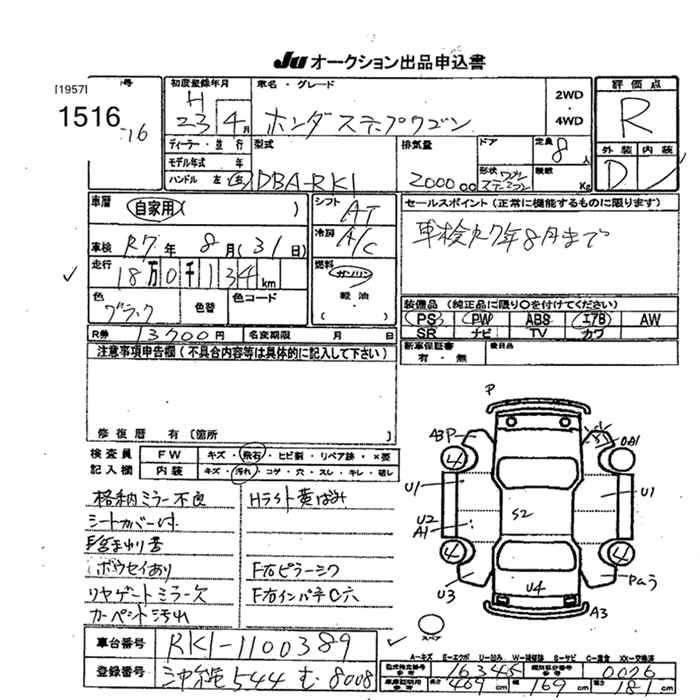 Ju オークション出品申込書
[1957]
1516
16
号
初度登録年月
車名・グレード
H
23 4月
ホンダ ステップワゴン
2WD
・
4WD
評価点
R
ディーラー・並行
型式
排気量
ドア
定員 8人
外装 内装
モデル年式 年
ハンドル 左 右
DBA-RK1
2000 cc
形状 ワゴン ステーション
積載 Kg
D
車歴
自家用( )
シフト
AT
セールスポイント(正常に機能するものに限ります)
車検R7年8月まで
冷房
A/C
車検 R7年 8月(31日)
走行
18万0千134km
燃料
ガソリン
軽油
( )
色
ブラック
色替
色コード
装備品(純正品に限り○を付けてください)
PS PW ABS エアB AW
SR ナビ TV カワ
R券 13700円 名変期限 月 日
新車保証書
有・無
後日品
注意事項申告欄(不具合内容等は具体的に記入して下さい)
修復歴 有(箇所
検査員
記入欄
FW キズ・飛石・ヒビ割・リペア跡・×要
内装 キズ・汚れ・コゲ・穴・スレ・キレ・破レ
格納ミラー不良
Hライト黄ばみ
シートカバー付
ボウセイあり
F右ピラーシワ
リヤゲートミラー欠
F右インパネ穴
カーペット汚れ
P
A3P
4
4
U1
U1
U2
A1
S2
4
4
U3
U4
A3
スペア
車台番号 RK1-1100389
登録番号 544 む 8008
A-キズ E-エクボ U-凹み W-補修跡 S-サビ C-腐食 XX-交換済
型式指定番号 参考 16345
類別区分番号 参考 0026
車庫証明用 参考 長さ 469cm 幅 169cm 高さ 181cm